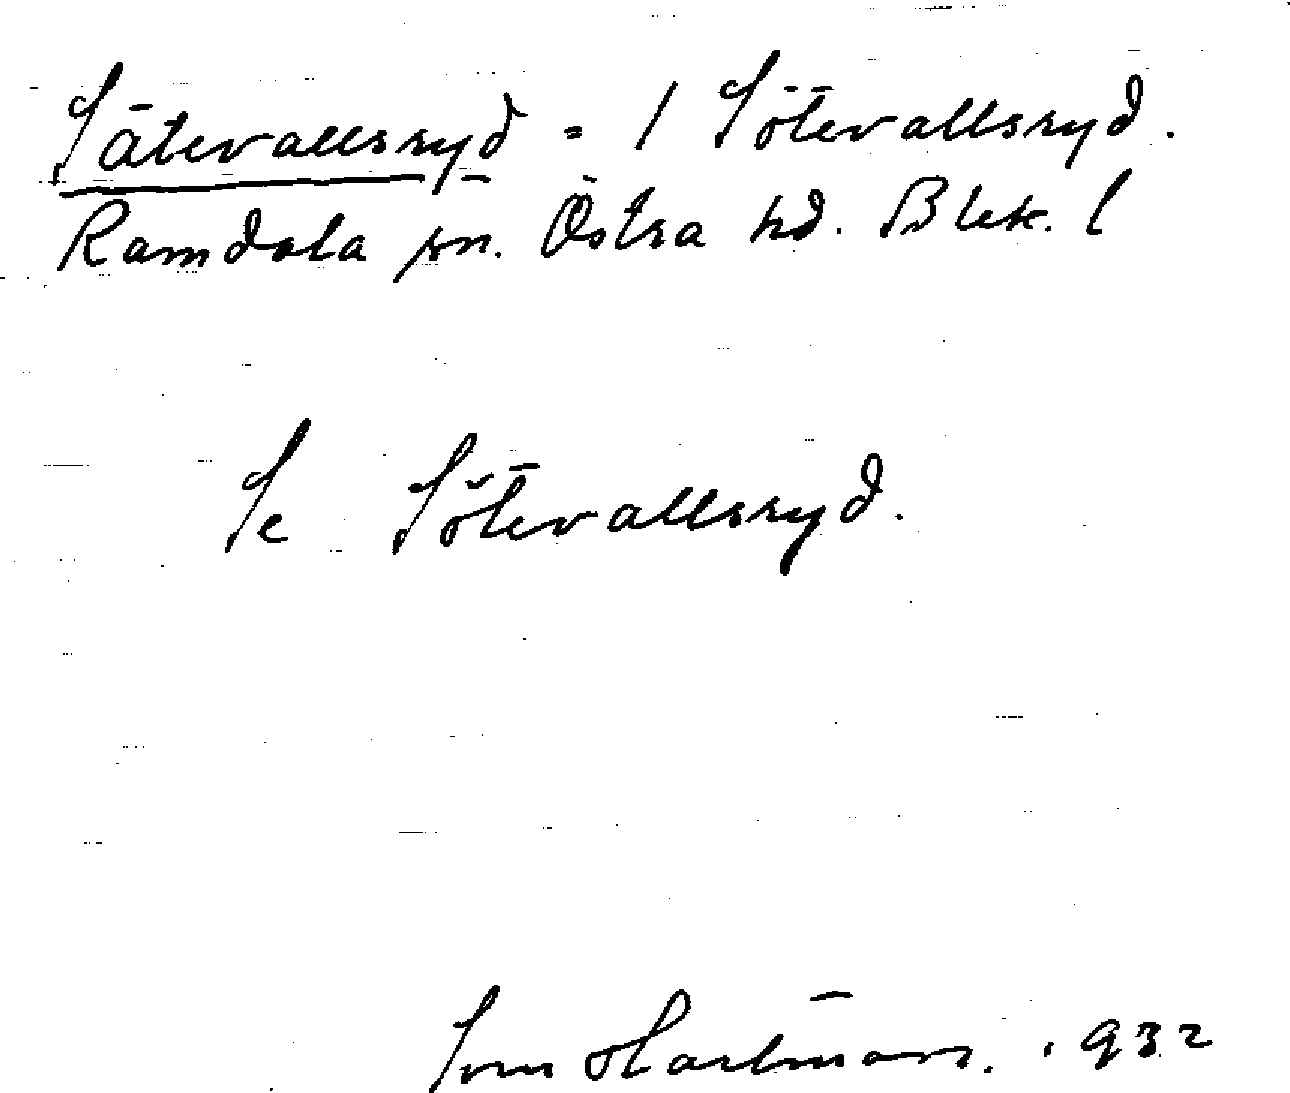 Sätevallsryd = / Sötevallsryd.
Ramdala sn. Östra hd. Blek. l
Se Sötevallsryd.
Sven Hartman. 1932